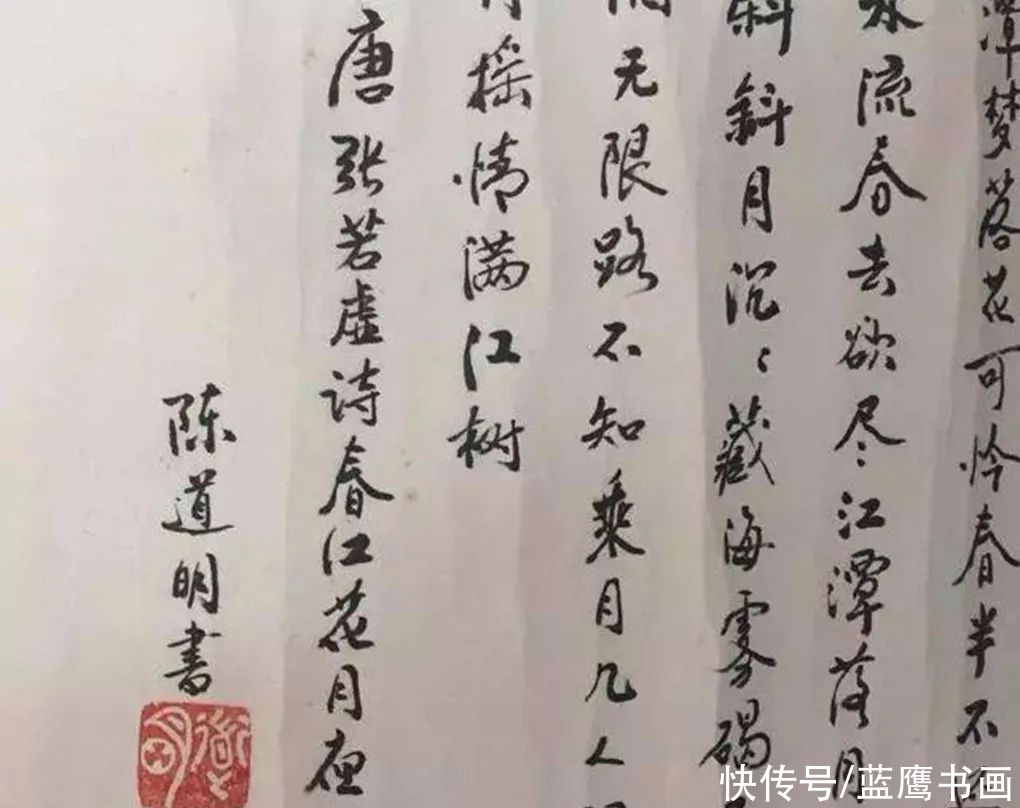 潭梦落花可怜春半不
水流春去欲尽江潭落月
斜斜月沉々藏海雾碣
无限路不知乘月几人
摇情满江树
唐张若虚诗春江花月夜
陈道明书
快传号/蓝鹰书画